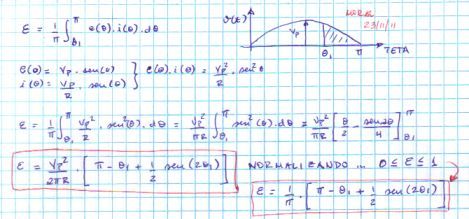 ε = 1/π ∫_{θ1}^{π} e(θ).i(θ).dθ
v(t)
Vp
23/11/11
θ1
π
TETA
e(θ) = Vp . sen(θ)
i(θ) = Vp/R . sen(θ)
} e(θ).i(θ) = Vp²/R . sen²θ
ε = 1/π ∫_{θ1}^{π} Vp²/R . sen²(θ).dθ = Vp²/πR ∫_{θ1}^{π} sen²(θ).dθ = Vp²/πR [θ/2 - sen2θ/4]_{θ1}^{π}
ε = Vp²/2πR . [π - θ1 + 1/2 sen(2θ1)]
NORMALIZANDO ... 0 ≤ ε ≤ 1
ε = 1/π . [π - θ1 + 1/2 sen(2θ1)]